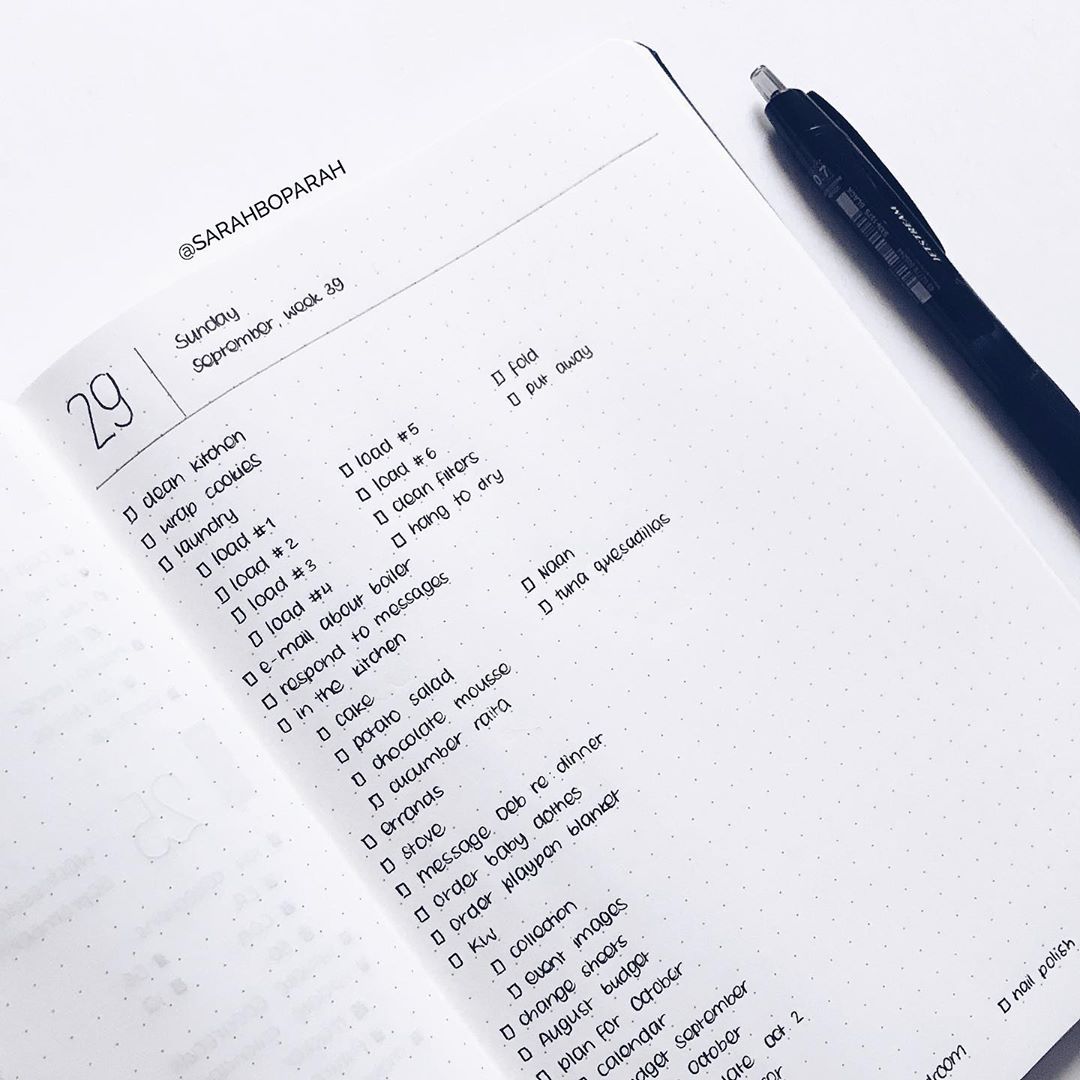 @SARAHBOPARAH
Sunday
September, week 39
29
clean kitchen
wrap cookies
laundry
load #1
load #2
load #3
load #4
load #5
load #6
clean filters
hang to dry
fold
put away
e-mail about boiler
respond to messages
in the kitchen
cake
potato salad
chocolate mousse
cucumber raita
Naan
tuna quesadillas
errands
stove
message Deb re: dinner
order baby clothes
order playpen blanket
KW
collection
event images
change sheets
August budget
plan for October
calendar
September
October
oct 2
nail polish
JETSTREAM